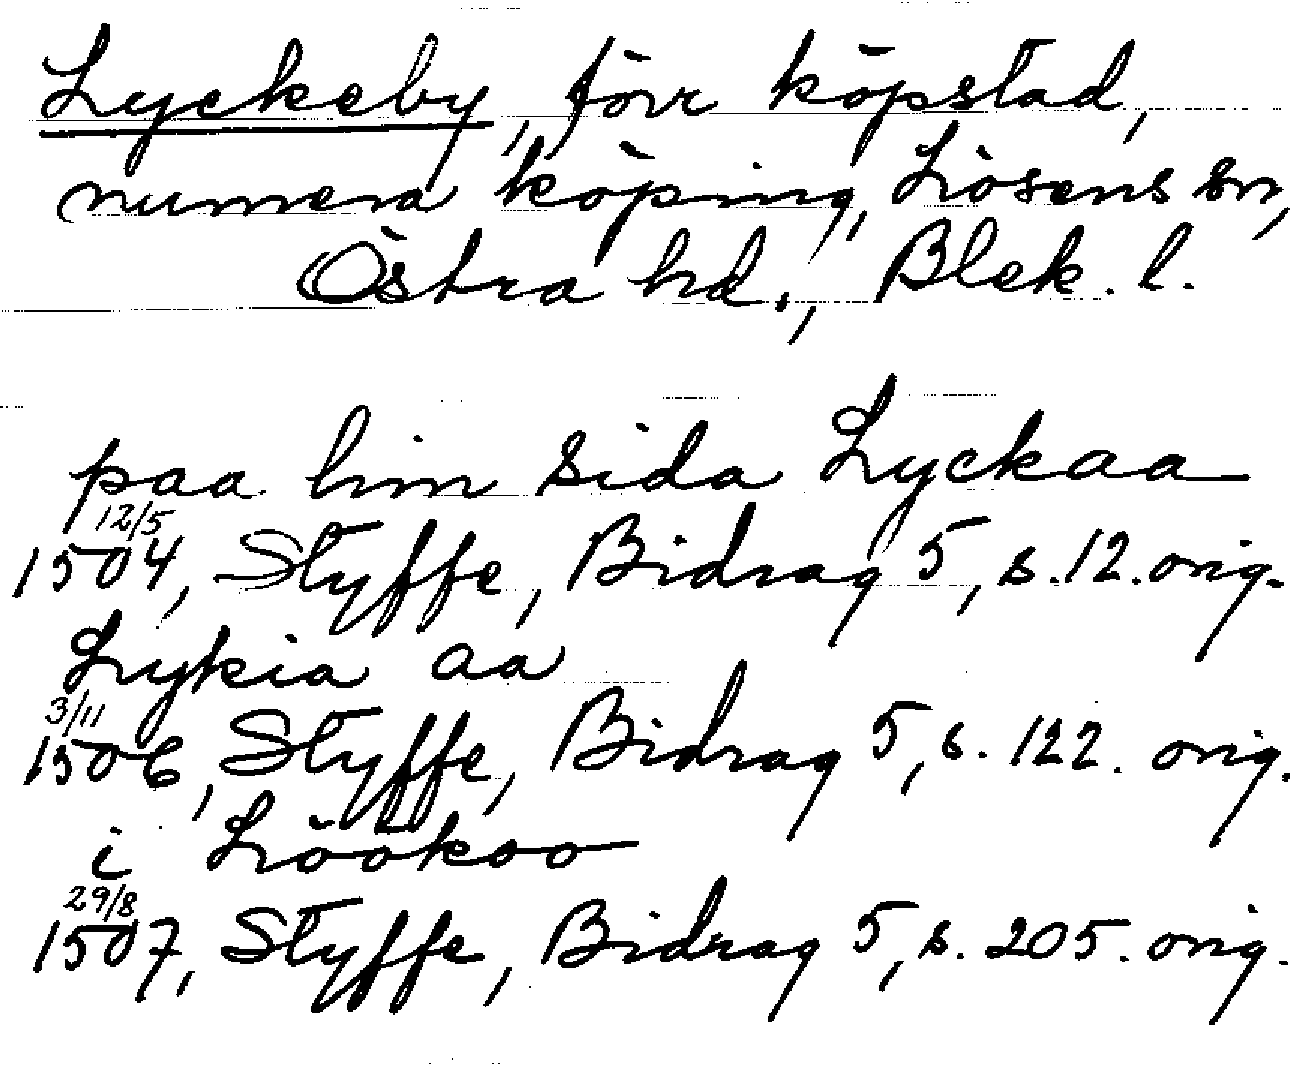 Lyckeby, förr köpstad,
numera köping, Lösens sn,
Östra hd., Blek. l.
paa hin sida Lyckaa
12/5
1504, Styffe, Bidrag 5, s. 12. orig.
Lykia aa
3/11
1506, Styffe, Bidrag 5, s. 122. orig.
i Löökoo
29/8
1507, Styffe, Bidrag 5, s. 205. orig.